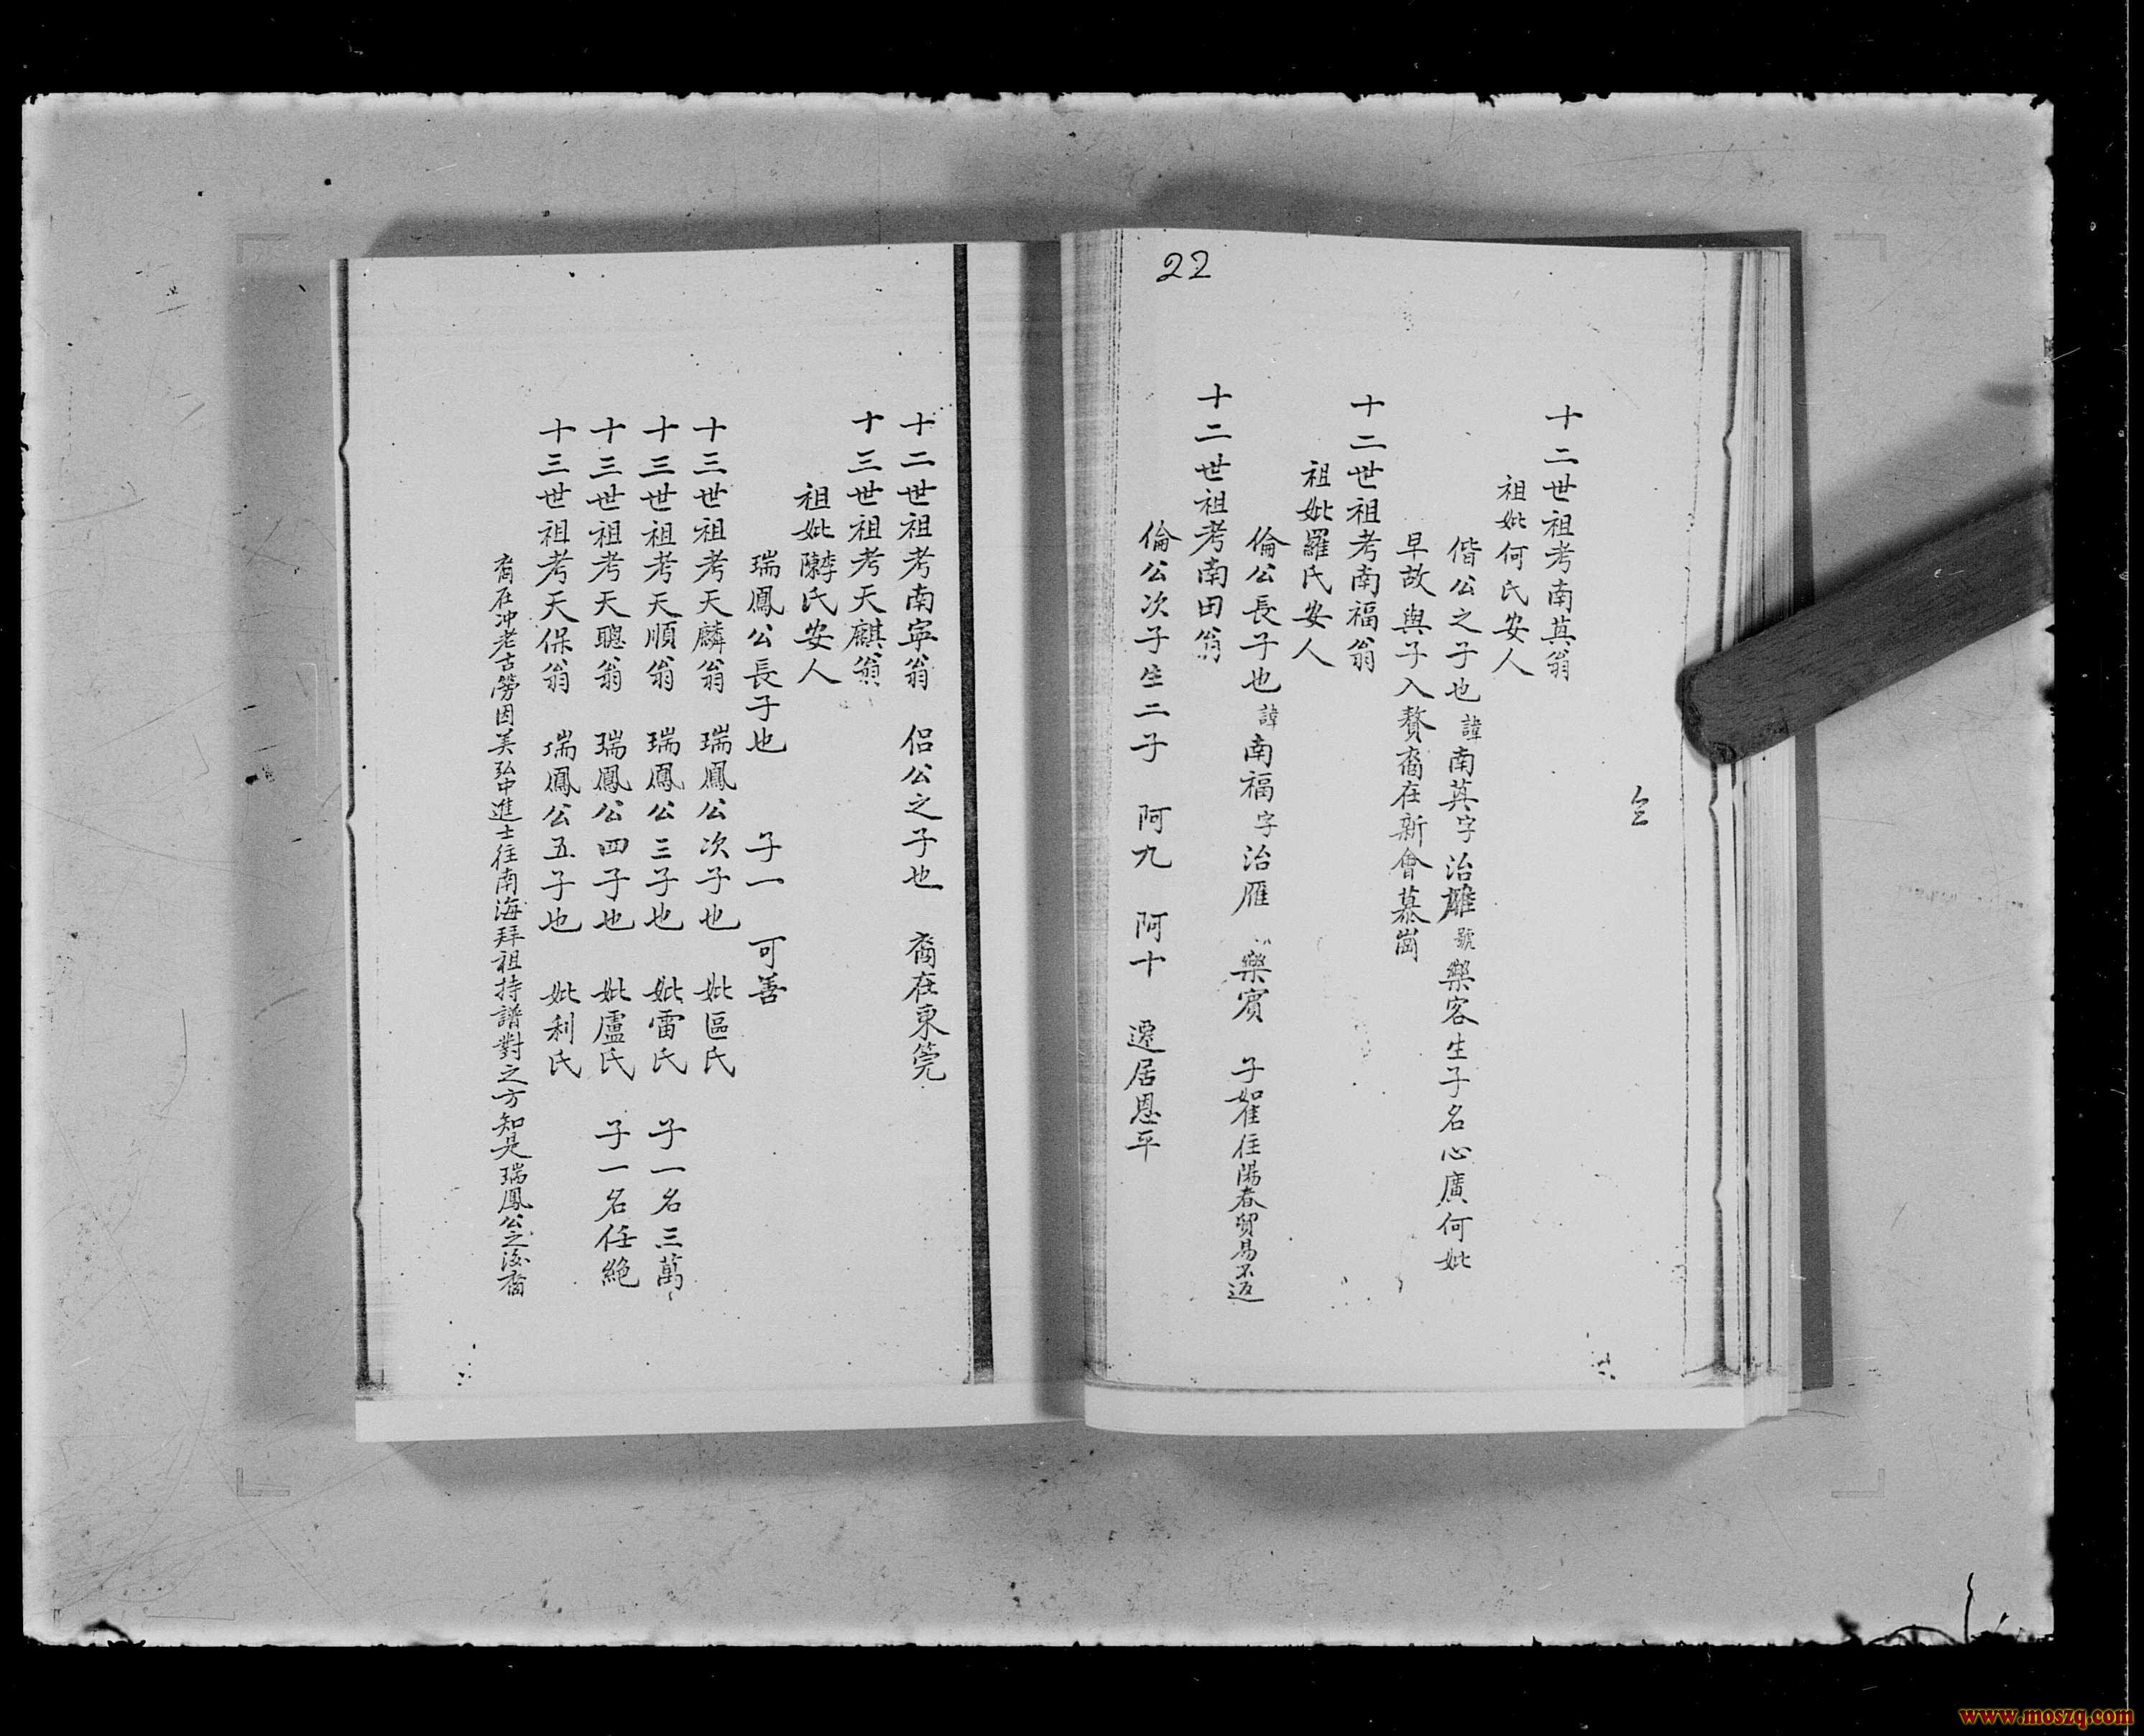 22
十二世祖考南英翁
祖妣何氏安人
偕公之子也諱南英字治雕號樂客生子名心廣何妣
早故與子入贅裔在新會慕崗
十二世祖考南福翁
祖妣羅氏安人
倫公長子也諱南福字治雁 樂賓 子如隹住陽春貿易不返
十二世祖考南田翁
倫公次子生二子 阿九 阿十 遷居恩平
十二世祖考南寧翁 侶公之子也 裔在東莞
十三世祖考天麒翁
祖妣氏安人
瑞鳳公長子也 子一 可善
十三世祖考天麟翁 瑞鳳公次子也 妣區氏
十三世祖考天順翁 瑞鳳公三子也 妣雷氏 子一名三萬
十三世祖考天聰翁 瑞鳳公四子也 妣盧氏 子一名任絕
十三世祖考天保翁 瑞鳳公五子也 妣利氏
裔在冲老古簩因美弘中進士往南海拜祖持譜對之方知是瑞鳳公之後裔
www.moszq.com